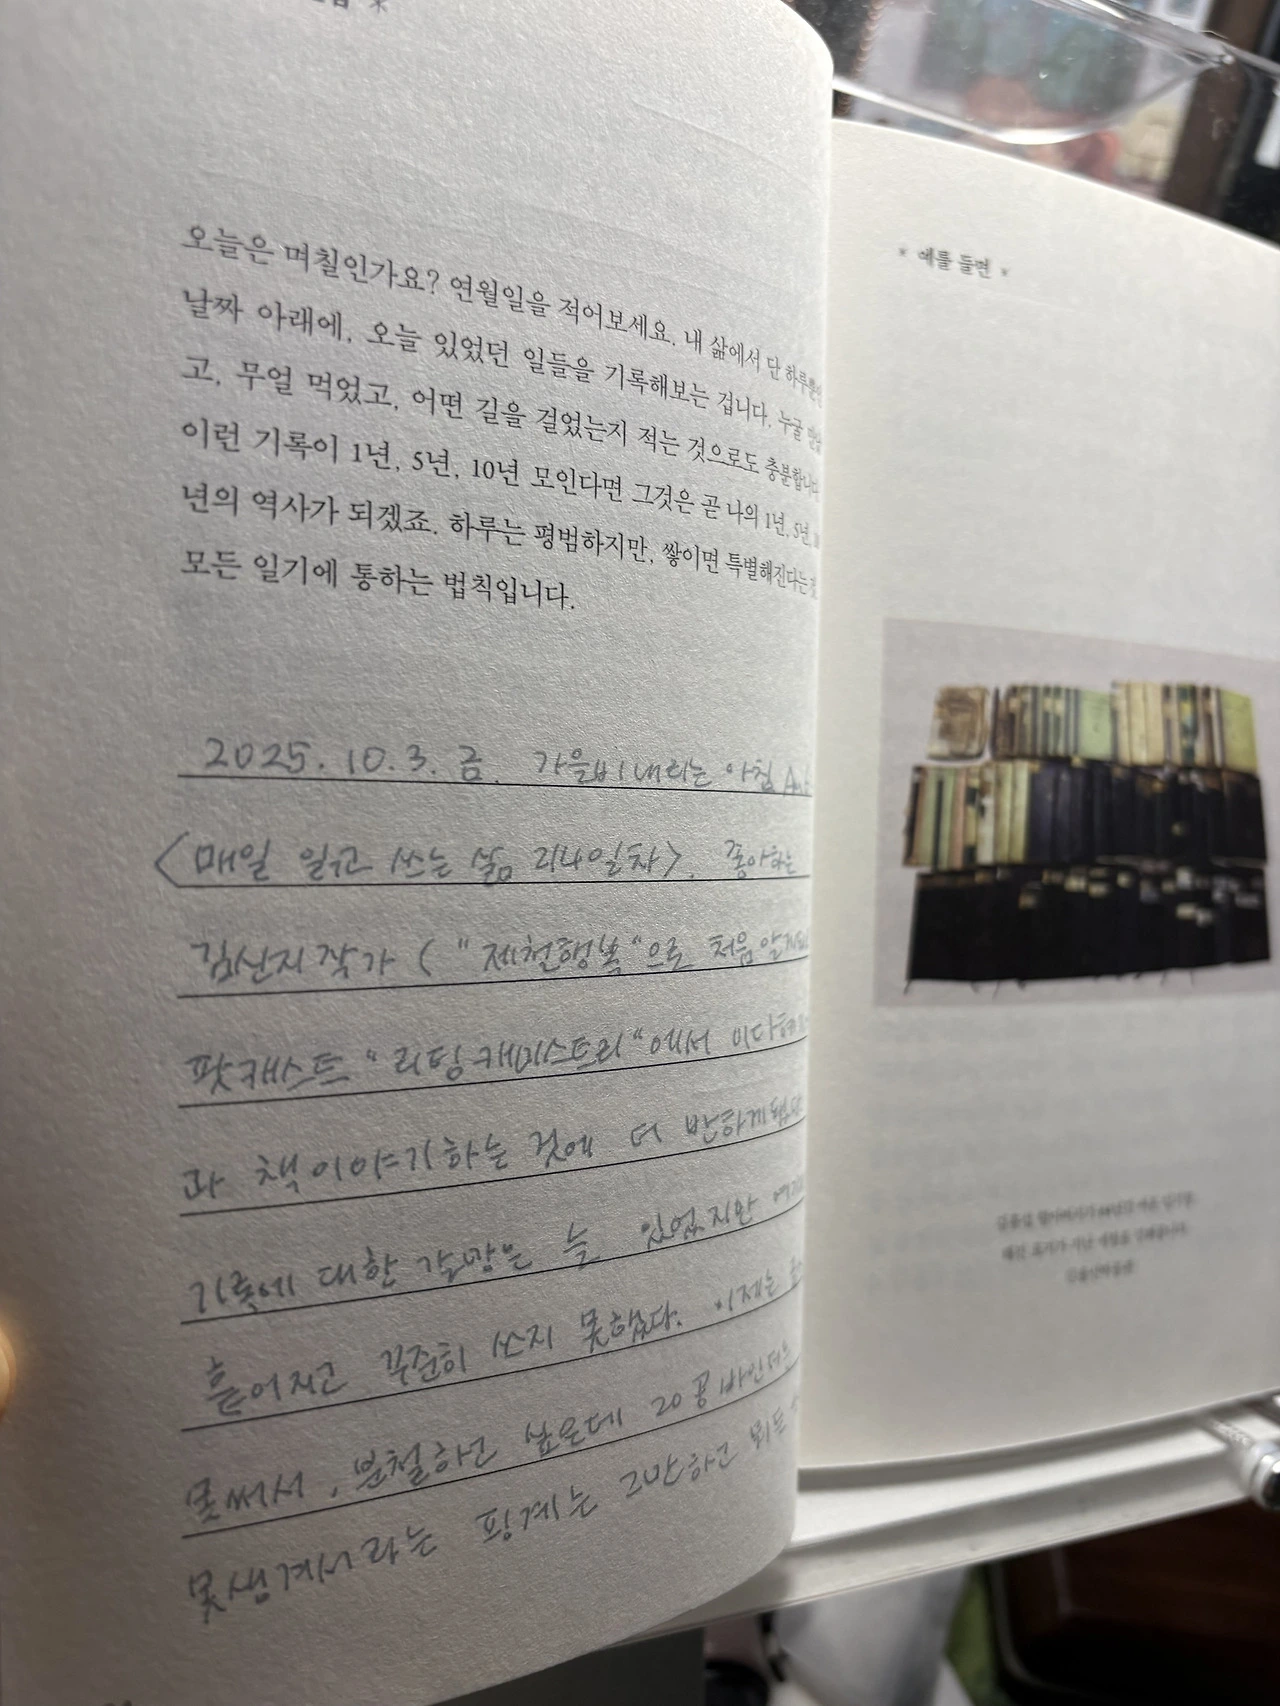 오늘은 며칠인가요? 연월일을 적어보세요. 내 삶에서 단 하루뿐인
날짜 아래에, 오늘 있었던 일들을 기록해보는 겁니다. 누굴
고, 무얼 먹었고, 어떤 길을 걸었는지 적는 것으로도 충분합니다
이런 기록이 1년, 5년, 10년 모인다면 그것은 곧 나의 1년, 5년,
년의 역사가 되겠죠. 하루는 평범하지만, 쌓이면 특별해진다는 것
모든 일기에 통하는 법칙입니다.
2025. 10. 3. 금. 가을비 내리는 아침
<매일 읽고 쓰는 삶 리4일차>. 좋아하는
김신지 작가 ( "제철행복"으로 처음 알게
팟캐스트 "리딩케미스트리"에서 이다혜
과 책이야기하는 것에 더 반하게
기록에 대한 갈망은 늘 있었지만
흩어지고 꾸준히 쓰지 못했다. 이제는
못써서, 분철하고 싶은데 20공 바인더는
못생겨서라는 핑계는 그만하고 뭐든
* 예를 들면 *